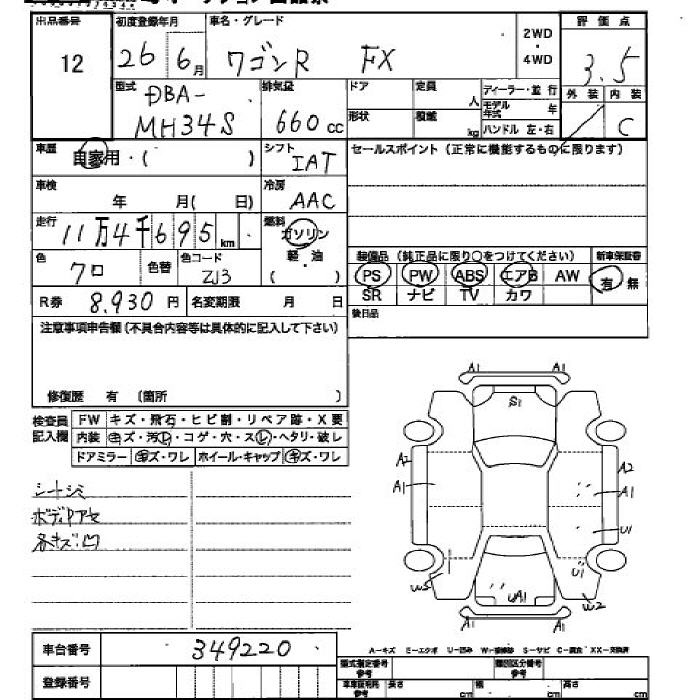 出品番号 初度登録年月 車名・グレード 2WD・4WD 評価点
12 26年6月 ワゴンR FX 3.5
型式 排気量 ドア 定員 人 ディーラー・並行 外装 内装
DBA-
MH34S 660cc 形状 積載 kg モデル年式 年 C
ハンドル 左・右
車歴 自家用・( ) シフト IAT セールスポイント(正常に機能するものに限ります)
車検 年 月(日) 冷房 AAC
走行 11万4千695km 燃料 ガソリン 軽・油 ( )
色 クロ 色替 色コード ZJ3
装備品(純正品に限り○をつけてください) 新車保証書
PS PW ABS エアB AW 有 無
SR ナビ TV カワ
R券 8,930円 名変期限 月 日 後日品
注意事項申告欄(不具合内容等は具体的に記入して下さい)
修復歴 有 (箇所 )
検査員記入欄 FW キズ・飛石・ヒビ割・リペア跡・X要
内装 キズ・汚レ・コゲ・穴・スレ・ヘタリ・破レ
ドアミラー キズ・ワレ ホイール・キャップ キズ・ワレ
シートシミ
各キズ凹
A1 A1
S1
A2 A1
A2 A1
U1
W3 U1 W2
UA1
A1 A1
車台番号 349220
登録番号
A-キズ E-エクボ U-凹み W-補修跡 S-サビ C-腐食 XX-交換済
型式指定番号 類別区分番号
長さ cm 幅 cm 高さ cm